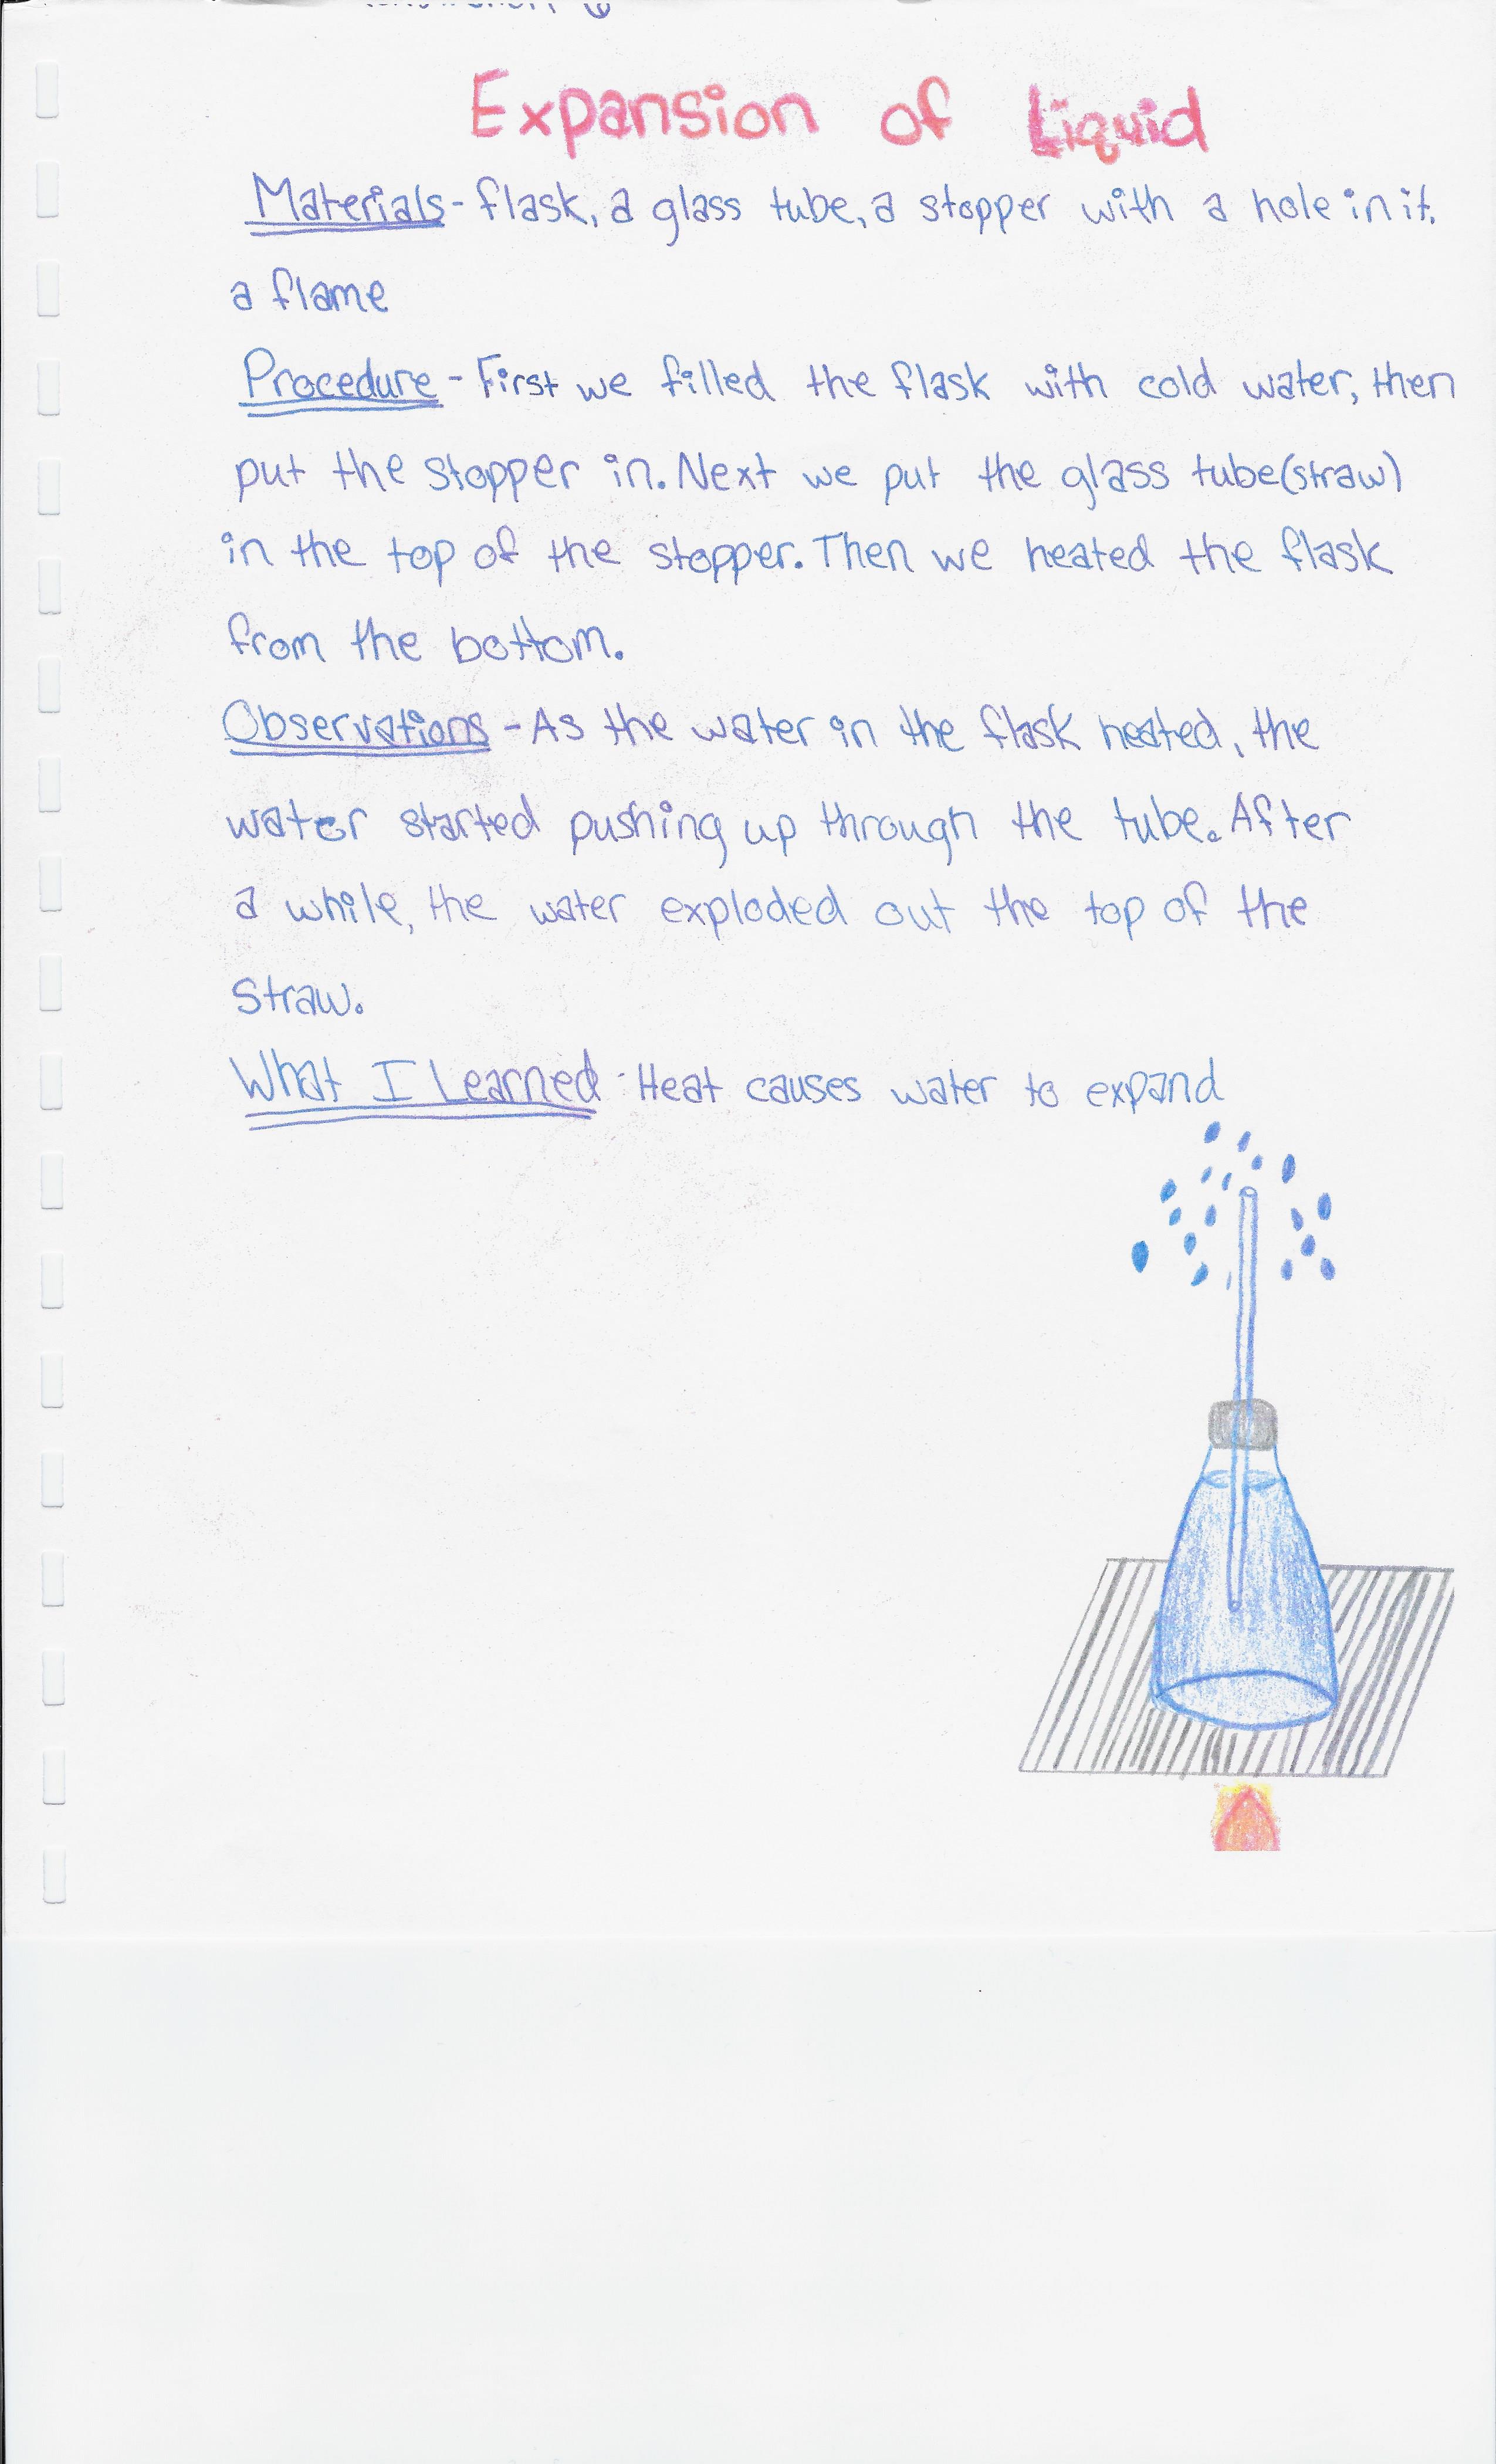 Expansion of Liquid
Materials - flask, a glass tube, a stopper with a hole in it,
a flame
Procedure - First we filled the flask with cold water, then
put the stopper in. Next we put the glass tube(straw)
in the top of the stopper. Then we heated the flask
from the bottom.
Observations - As the water in the flask heated, the
water started pushing up through the tube. After
a while, the water exploded out the top of the
straw.
What I Learned - Heat causes water to expand